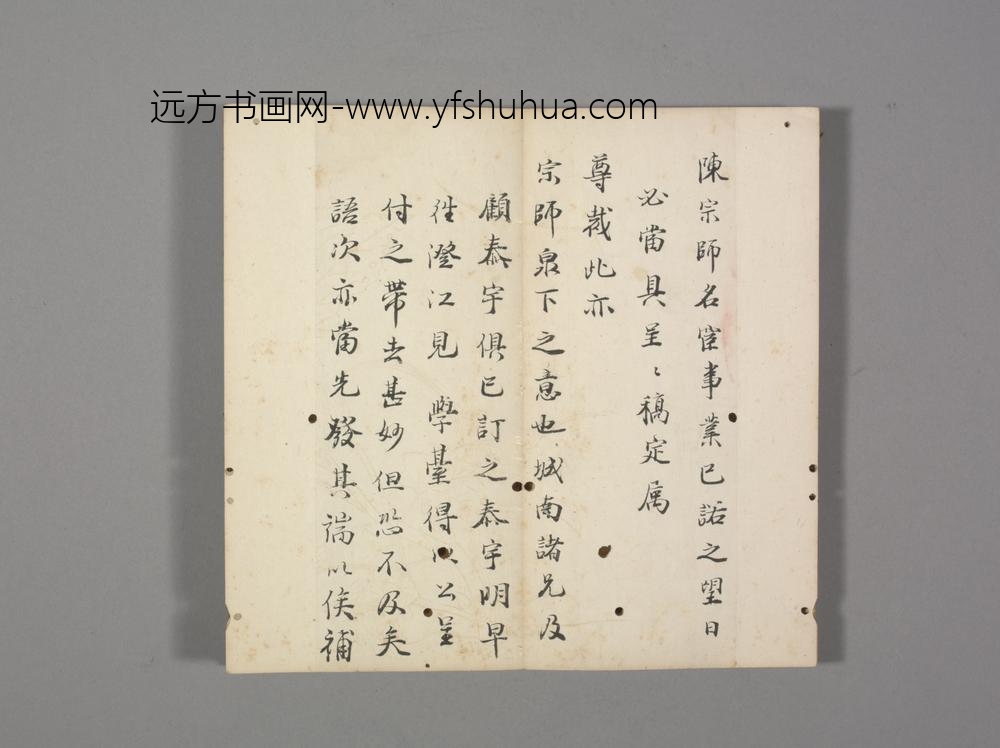 远方书画网-www.yfshuhua.com
陳宗師名宦事業已諾之望日
必當具呈〻稿定属
尊裁此亦
宗師泉下之意也城南諸兄及
顧泰宇俱已訂之泰宇明早
徃澄江見 學臺得以公呈
付之帶去甚妙但恐不及矣
語次亦當先發其端以俟補